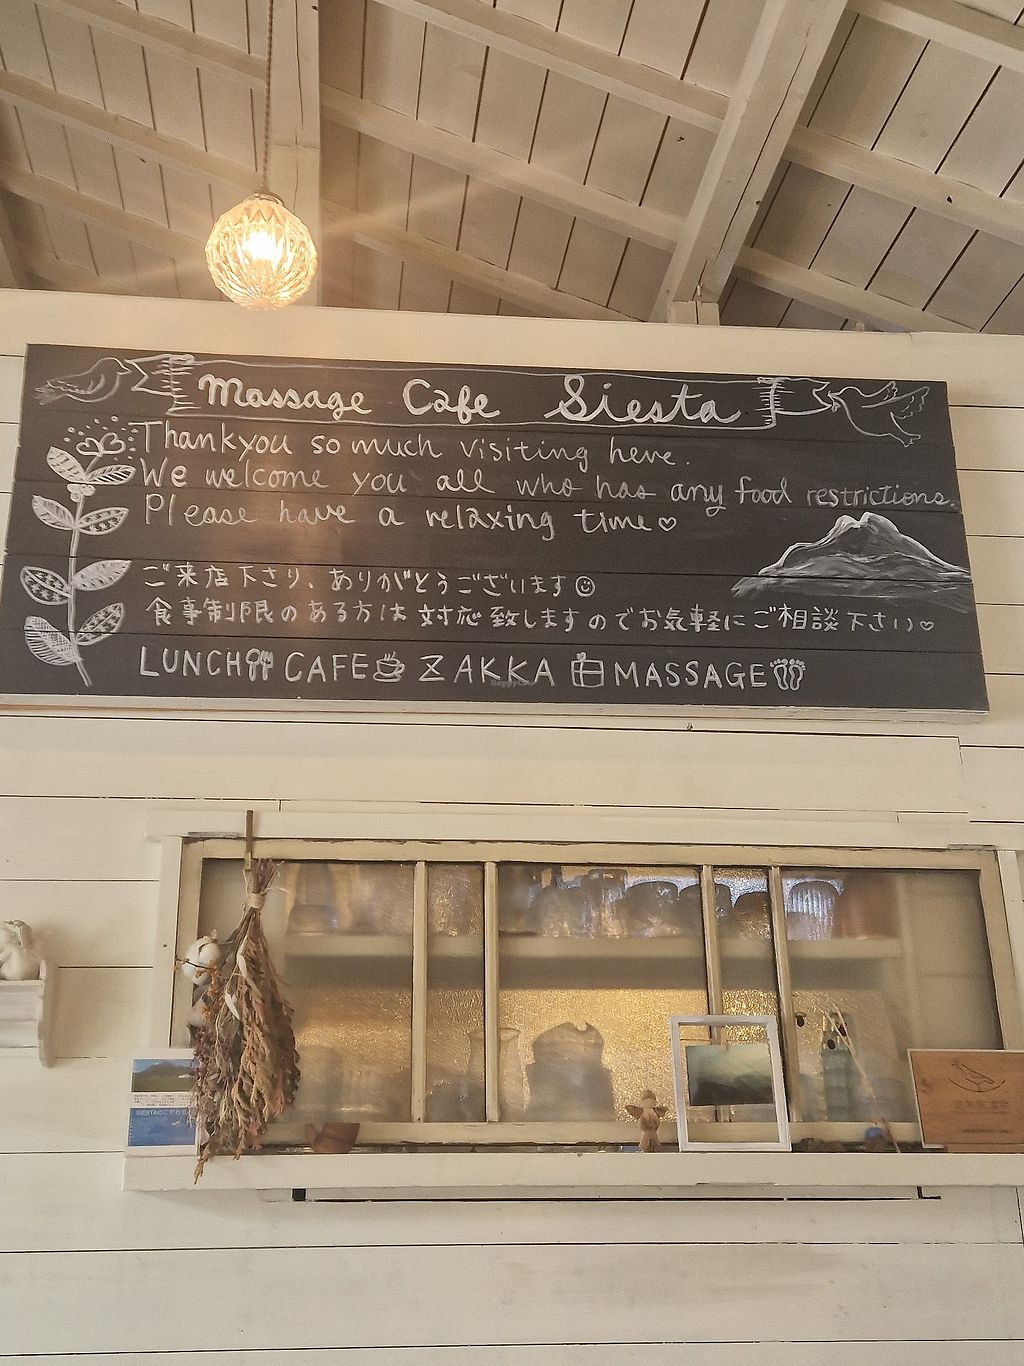 Massage Cafe Siesta
Thankyou so much visiting here.
We welcome you all who has any food restrictions.
Please have a relaxing time♡
ご来店下さり、ありがとうございます☺
食事制限のある方は対応致しますのでお気軽にご相談下さい♡
LUNCH CAFE ZAKKA MASSAGE